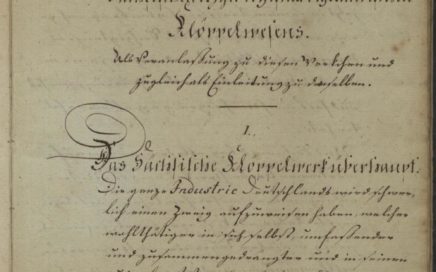 Klöppelwesens.
Als Veranlassung zu diesen Werkchen und
zugleich als Einleitung zu demselben.
I.
Das Sächsische Klöppelwerk überhaupt.
Die ganze Industrie Deutschlands wird schwer-
lich einen Zweig aufzuweisen haben, welcher
wohlthätiger in sich selbst, umfassender
und zusammengedrängter und in seinen